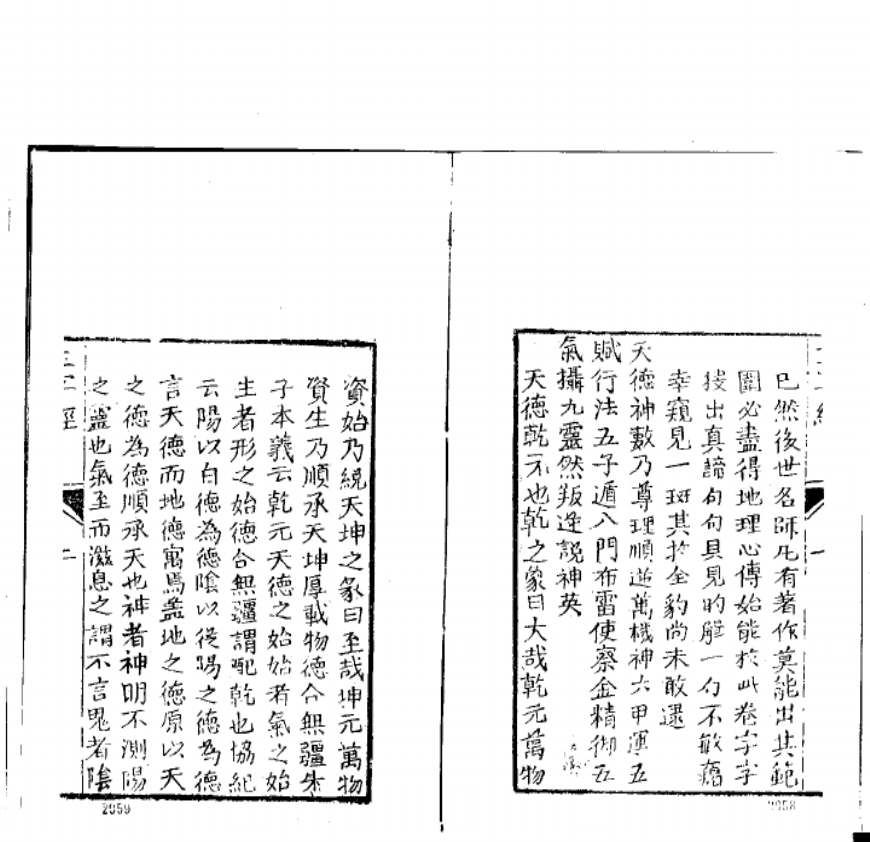 已然後世名師凡有著作莫能出其範
圍必盡得地理心傳始能於此卷字字
技出真諦句句具見的解一勺不敏竊
幸窺見一斑其於全豹尚未敢逮
天德神數乃尊理順逆萬機神六甲運五
賦行法五子遁八門布雷使察金精御五
氣攝九靈然叛逆說神英
天德乾元也乾之象曰大哉乾元萬物
2058
資始乃統天坤之彖曰至哉坤元萬物
資生乃順承天坤厚載物德合無疆朱
子本義云乾元天德之始始者氣之始
生者形之始德合無疆謂配乾也協紀
云陽以自德為德陰以從陽之德為德
言天德而地德寓焉盖地之德原以天
之德為德順承天也神者神明不測陽
之靈也氣至而滋息之謂不言鬼者陰
三字經
二
2059